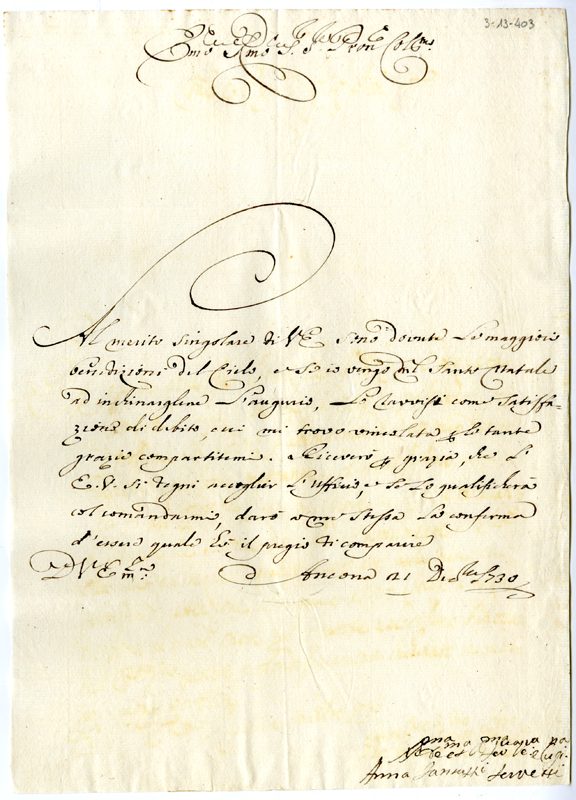 3-13-403
Em̃o e Rm̃o Sig.r Sig.r e Pron Colmo
Al merito singolare di V E sono dovute le maggiori
benedizioni del Cielo, e se io vengo nel Santo Natale
ad inchinargliene l'augurio, lo ravvisi come satisfa=
zione di debito, cui mi trovo vincolata p le tante
grazie compartitemi. Riceverò p grazia, che l'
E.V. si degni accoglier l'uffizio, e se lo qualificherà
col comandarmi, darà a me stessa la conferma
d'essere quale hò il pregio di comparire
D V Em.za Ancona 21 Dec.bre 1730
Anna
Servetti